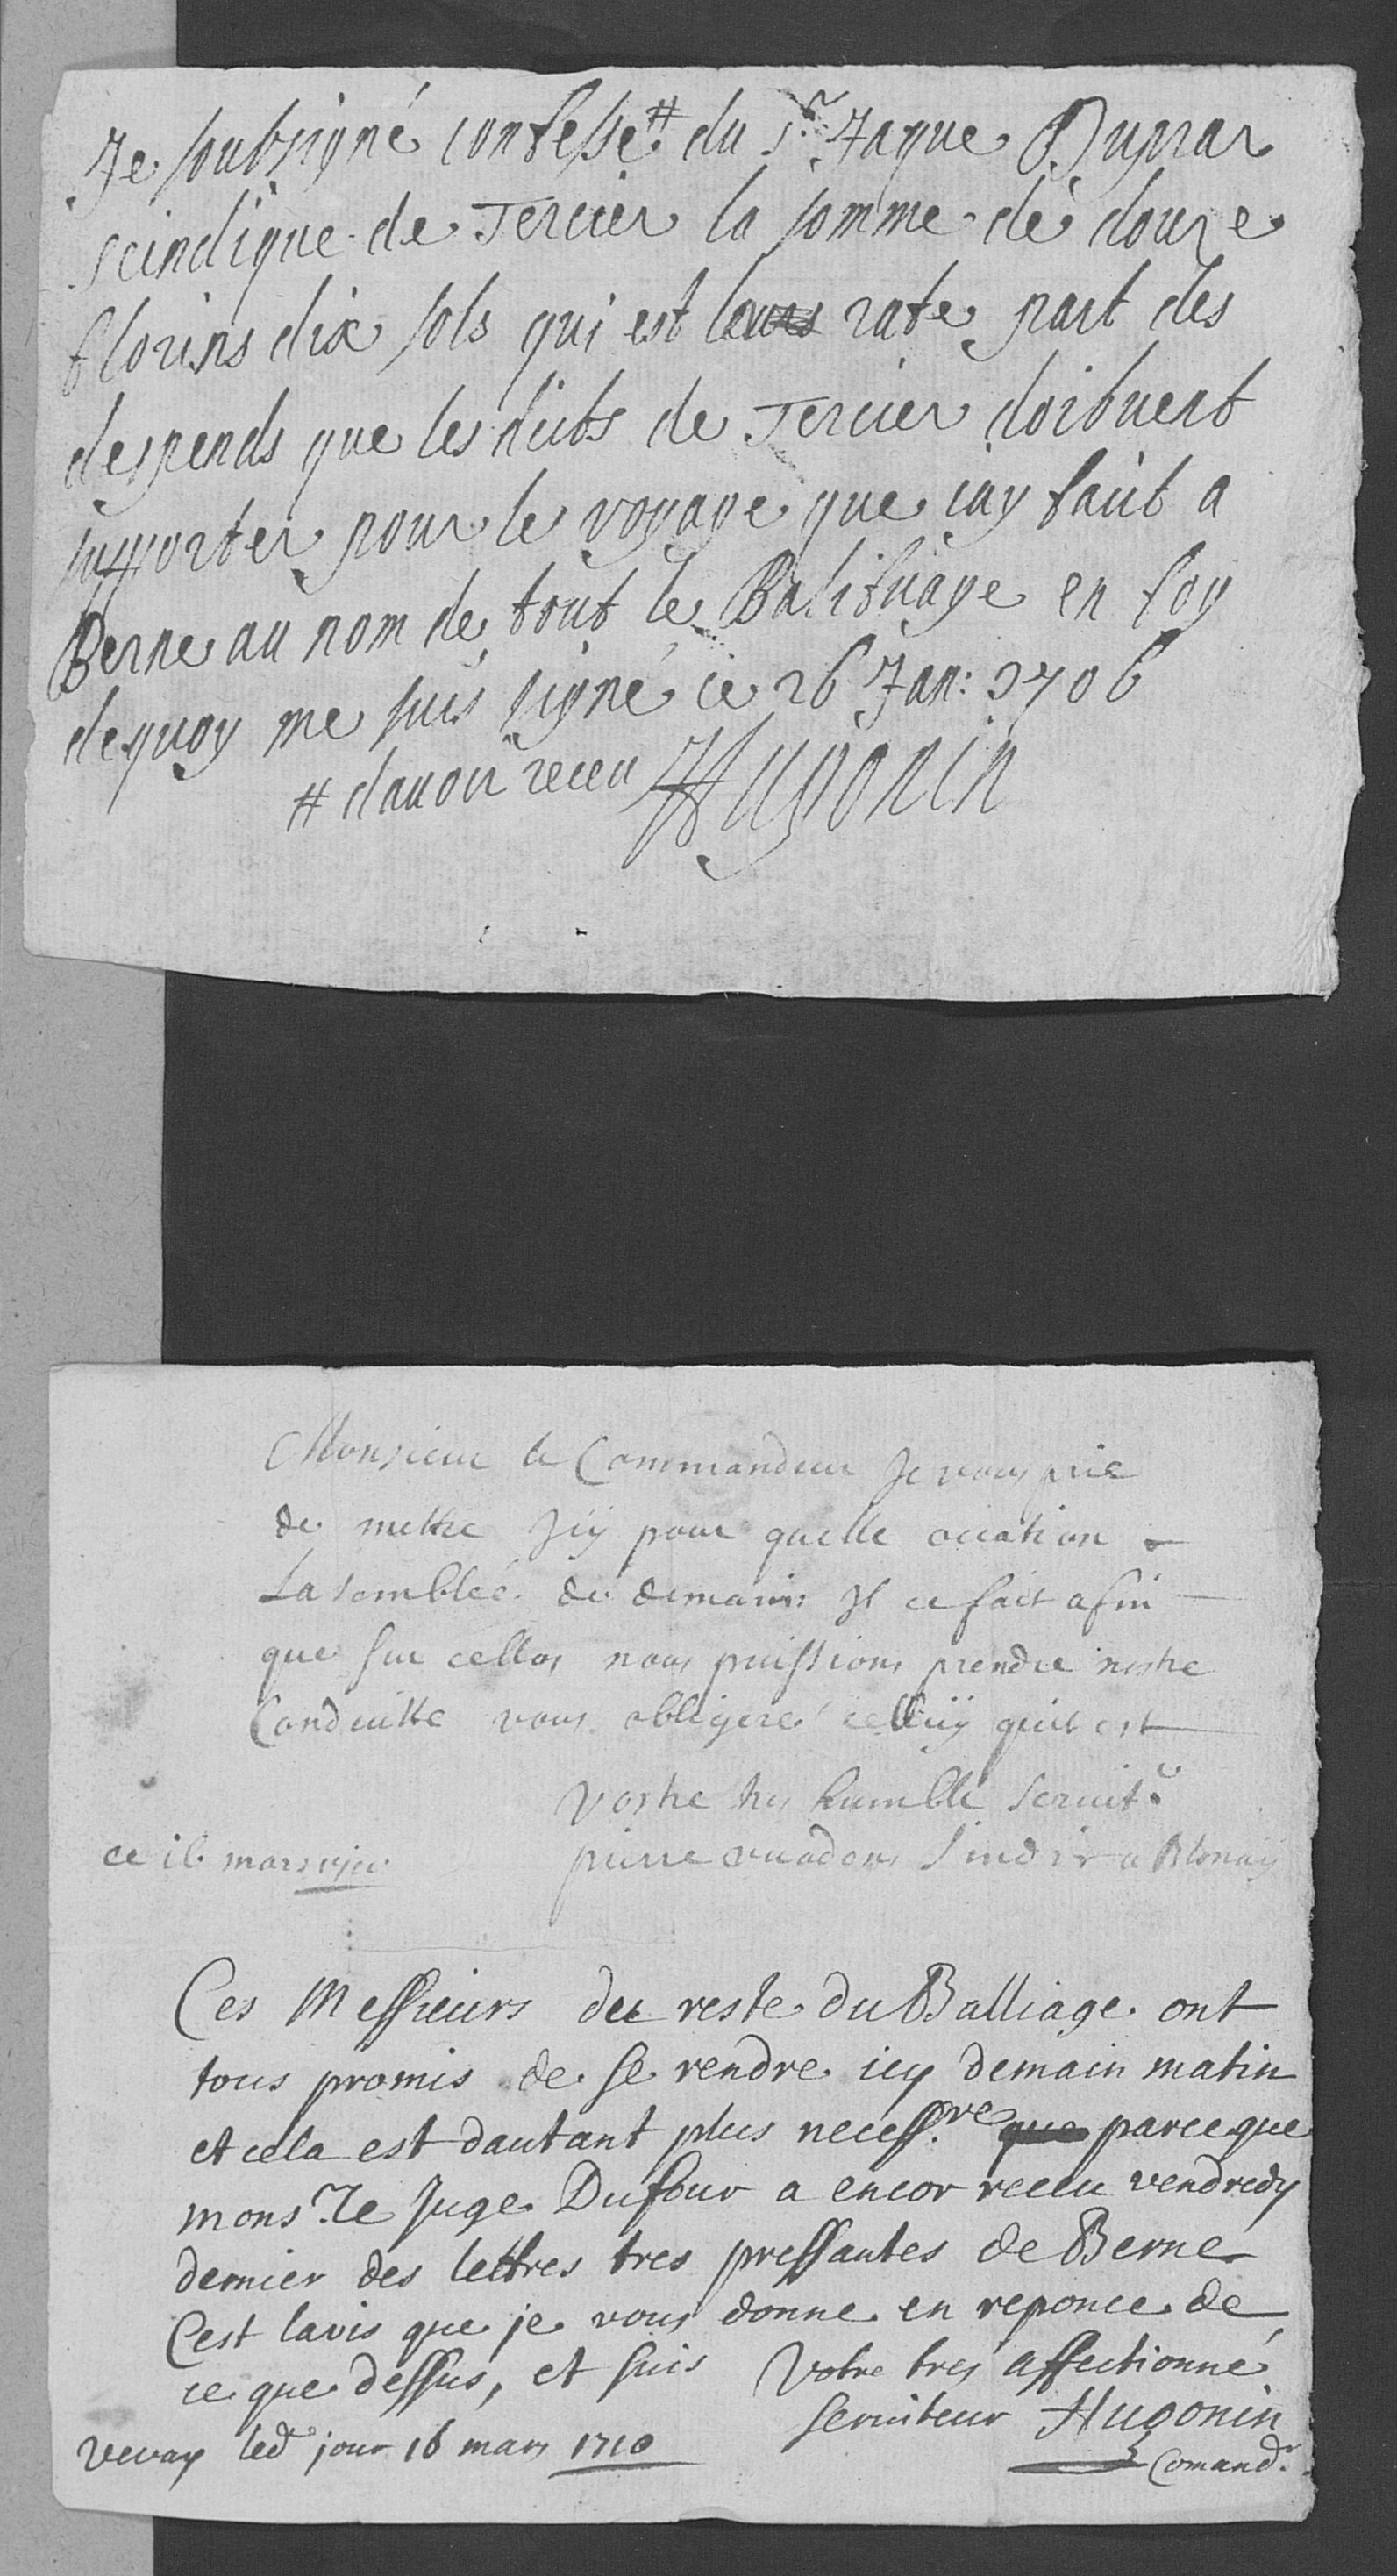 Je soubsigné confesse # du Sr. Jaque Duprar
scindique de Tercier la somme de douze
florins dix sols qui est leurs rate part des
despends que les dicts de Tercier doibvent
supporter pour le voyage que jay faict a
Berne au nom de tout le Balifvage en foy
dequoy me suis signé ce 26 Jan: 1706
# davoir receu Hugonin
Monsieur le Commandeur Je vous prie
de mettre Jcy pour quelle occation
Lasemblée de demain Jl ce fait afin
que sur cellas nous puissions prendre nostre
Conduitte vous obligeré celluy quil est
vostre tres humble servitr.
ce 16 mars 1710 pierre a Blonay
Ces Messieurs du reste du Balliage ont
tous promis de se rendre icy demain matin
et cela est dautant plus necessre. que parceque
monsr. le Juge Dufour a encor receu vendredy
dernier des lettres tres pressantes de Berne
Cest lavis que je vous donne en reponce de
ce que dessus, et suis Votre tres affectionné
serviteur Hugonin
Comandr.
Vevay led jour 16 mars 1710